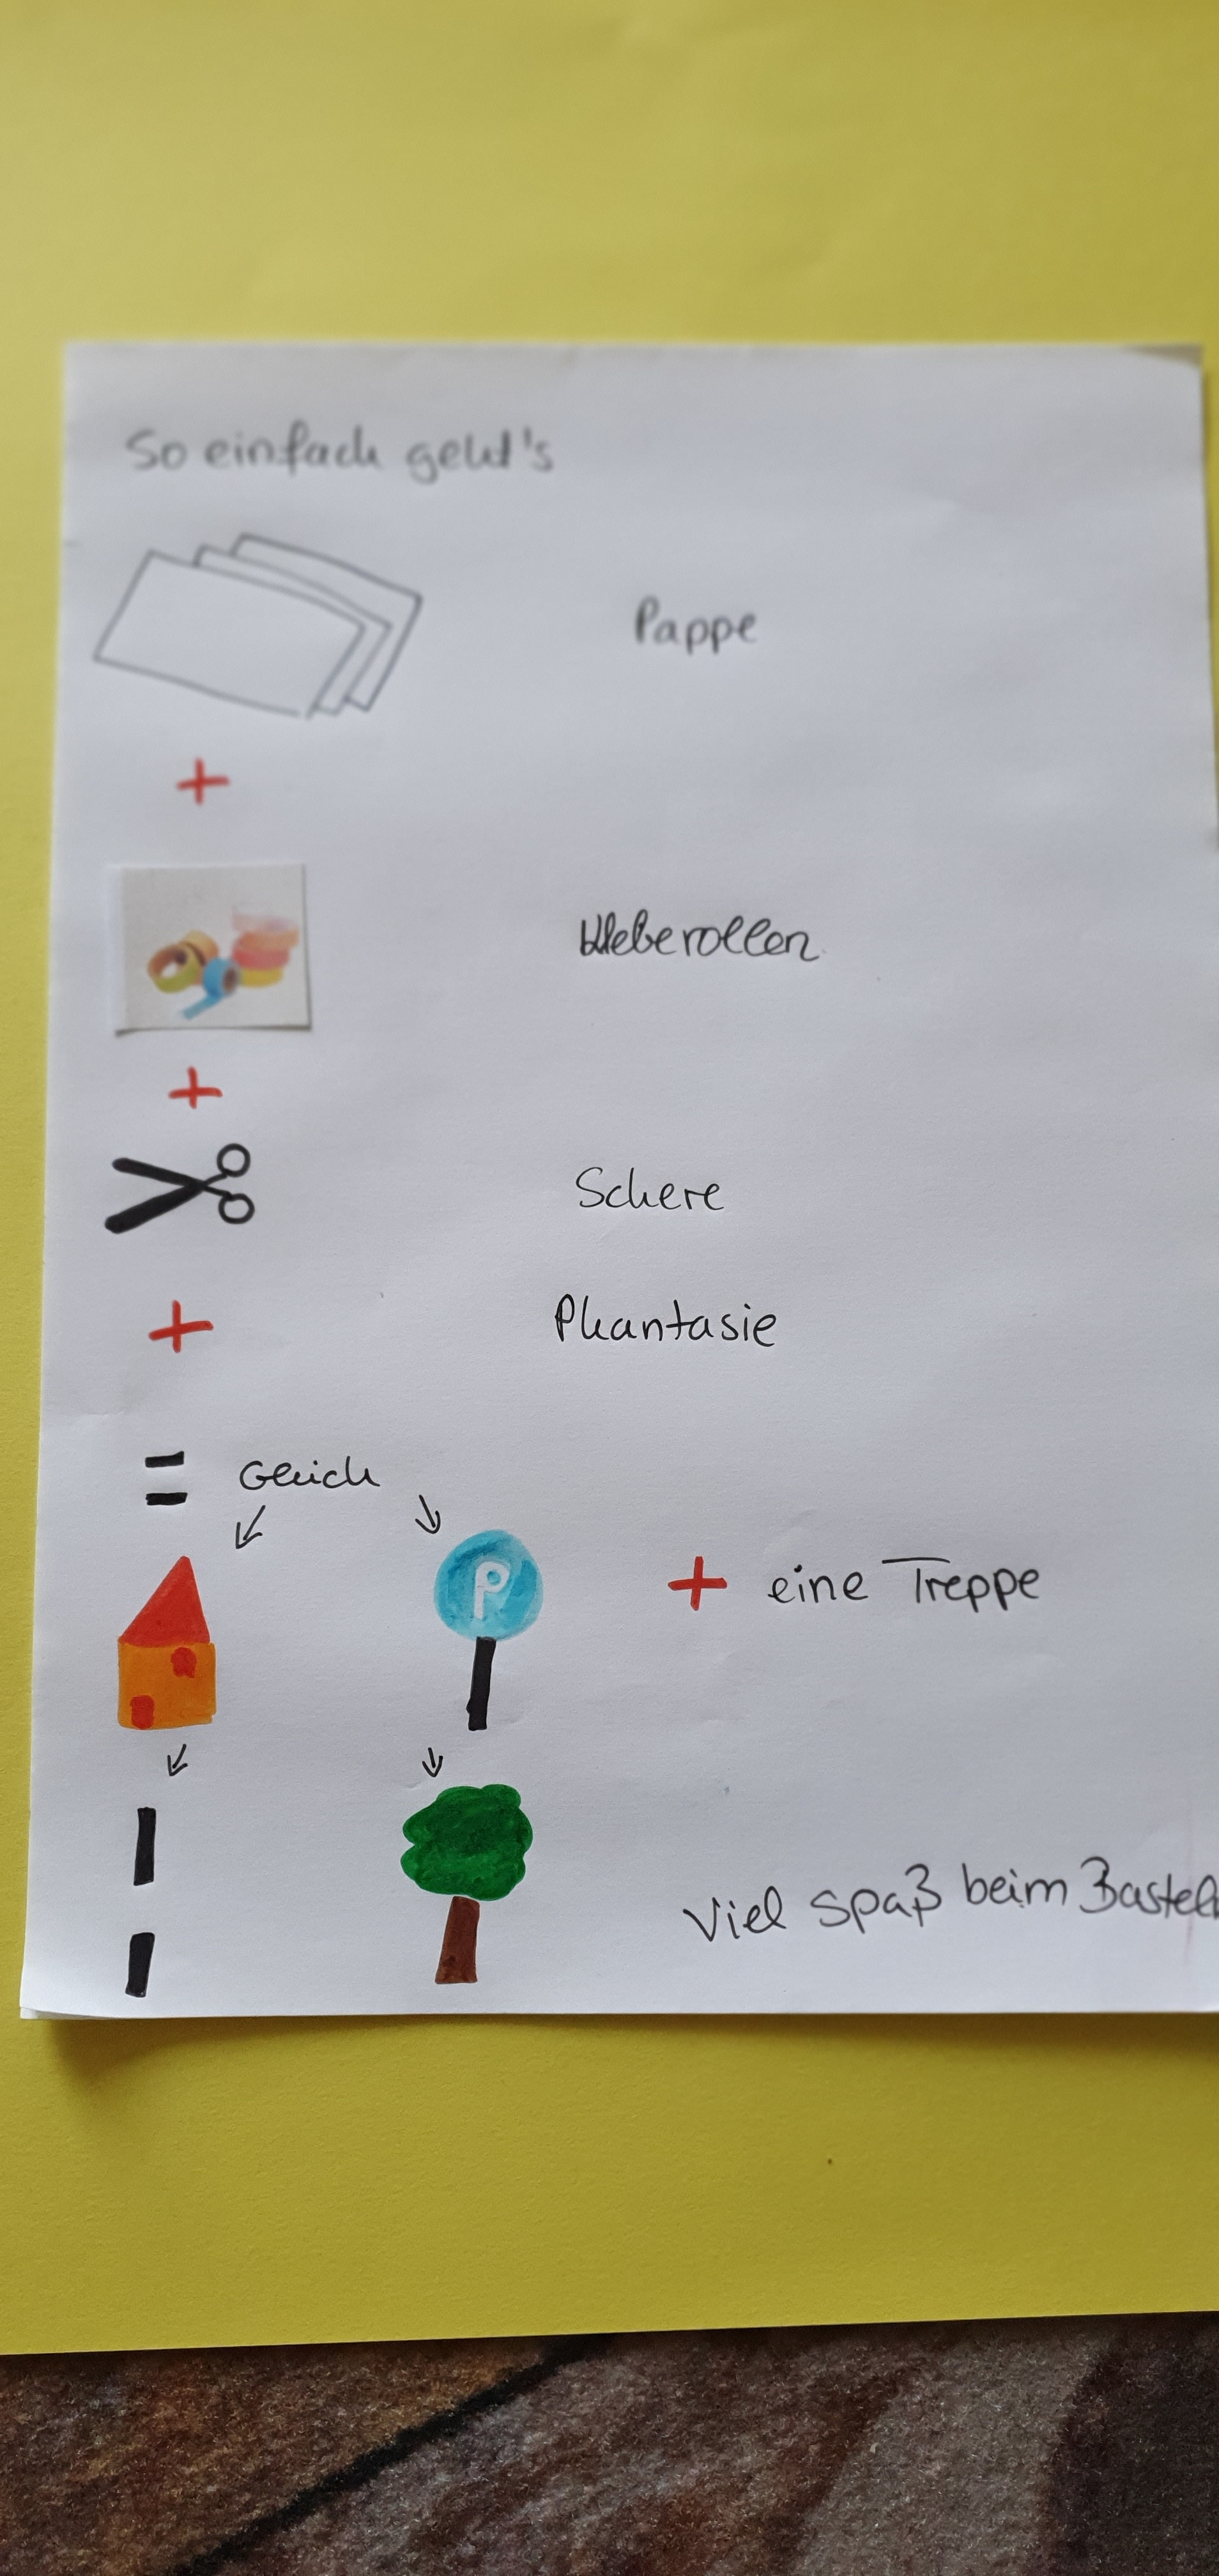 So einfach geht's
Pappe
+
Kleberollen
+
Schere
+ Phantasie
= Gleich
P
+ eine Treppe
Viel Spaß beim Basteln